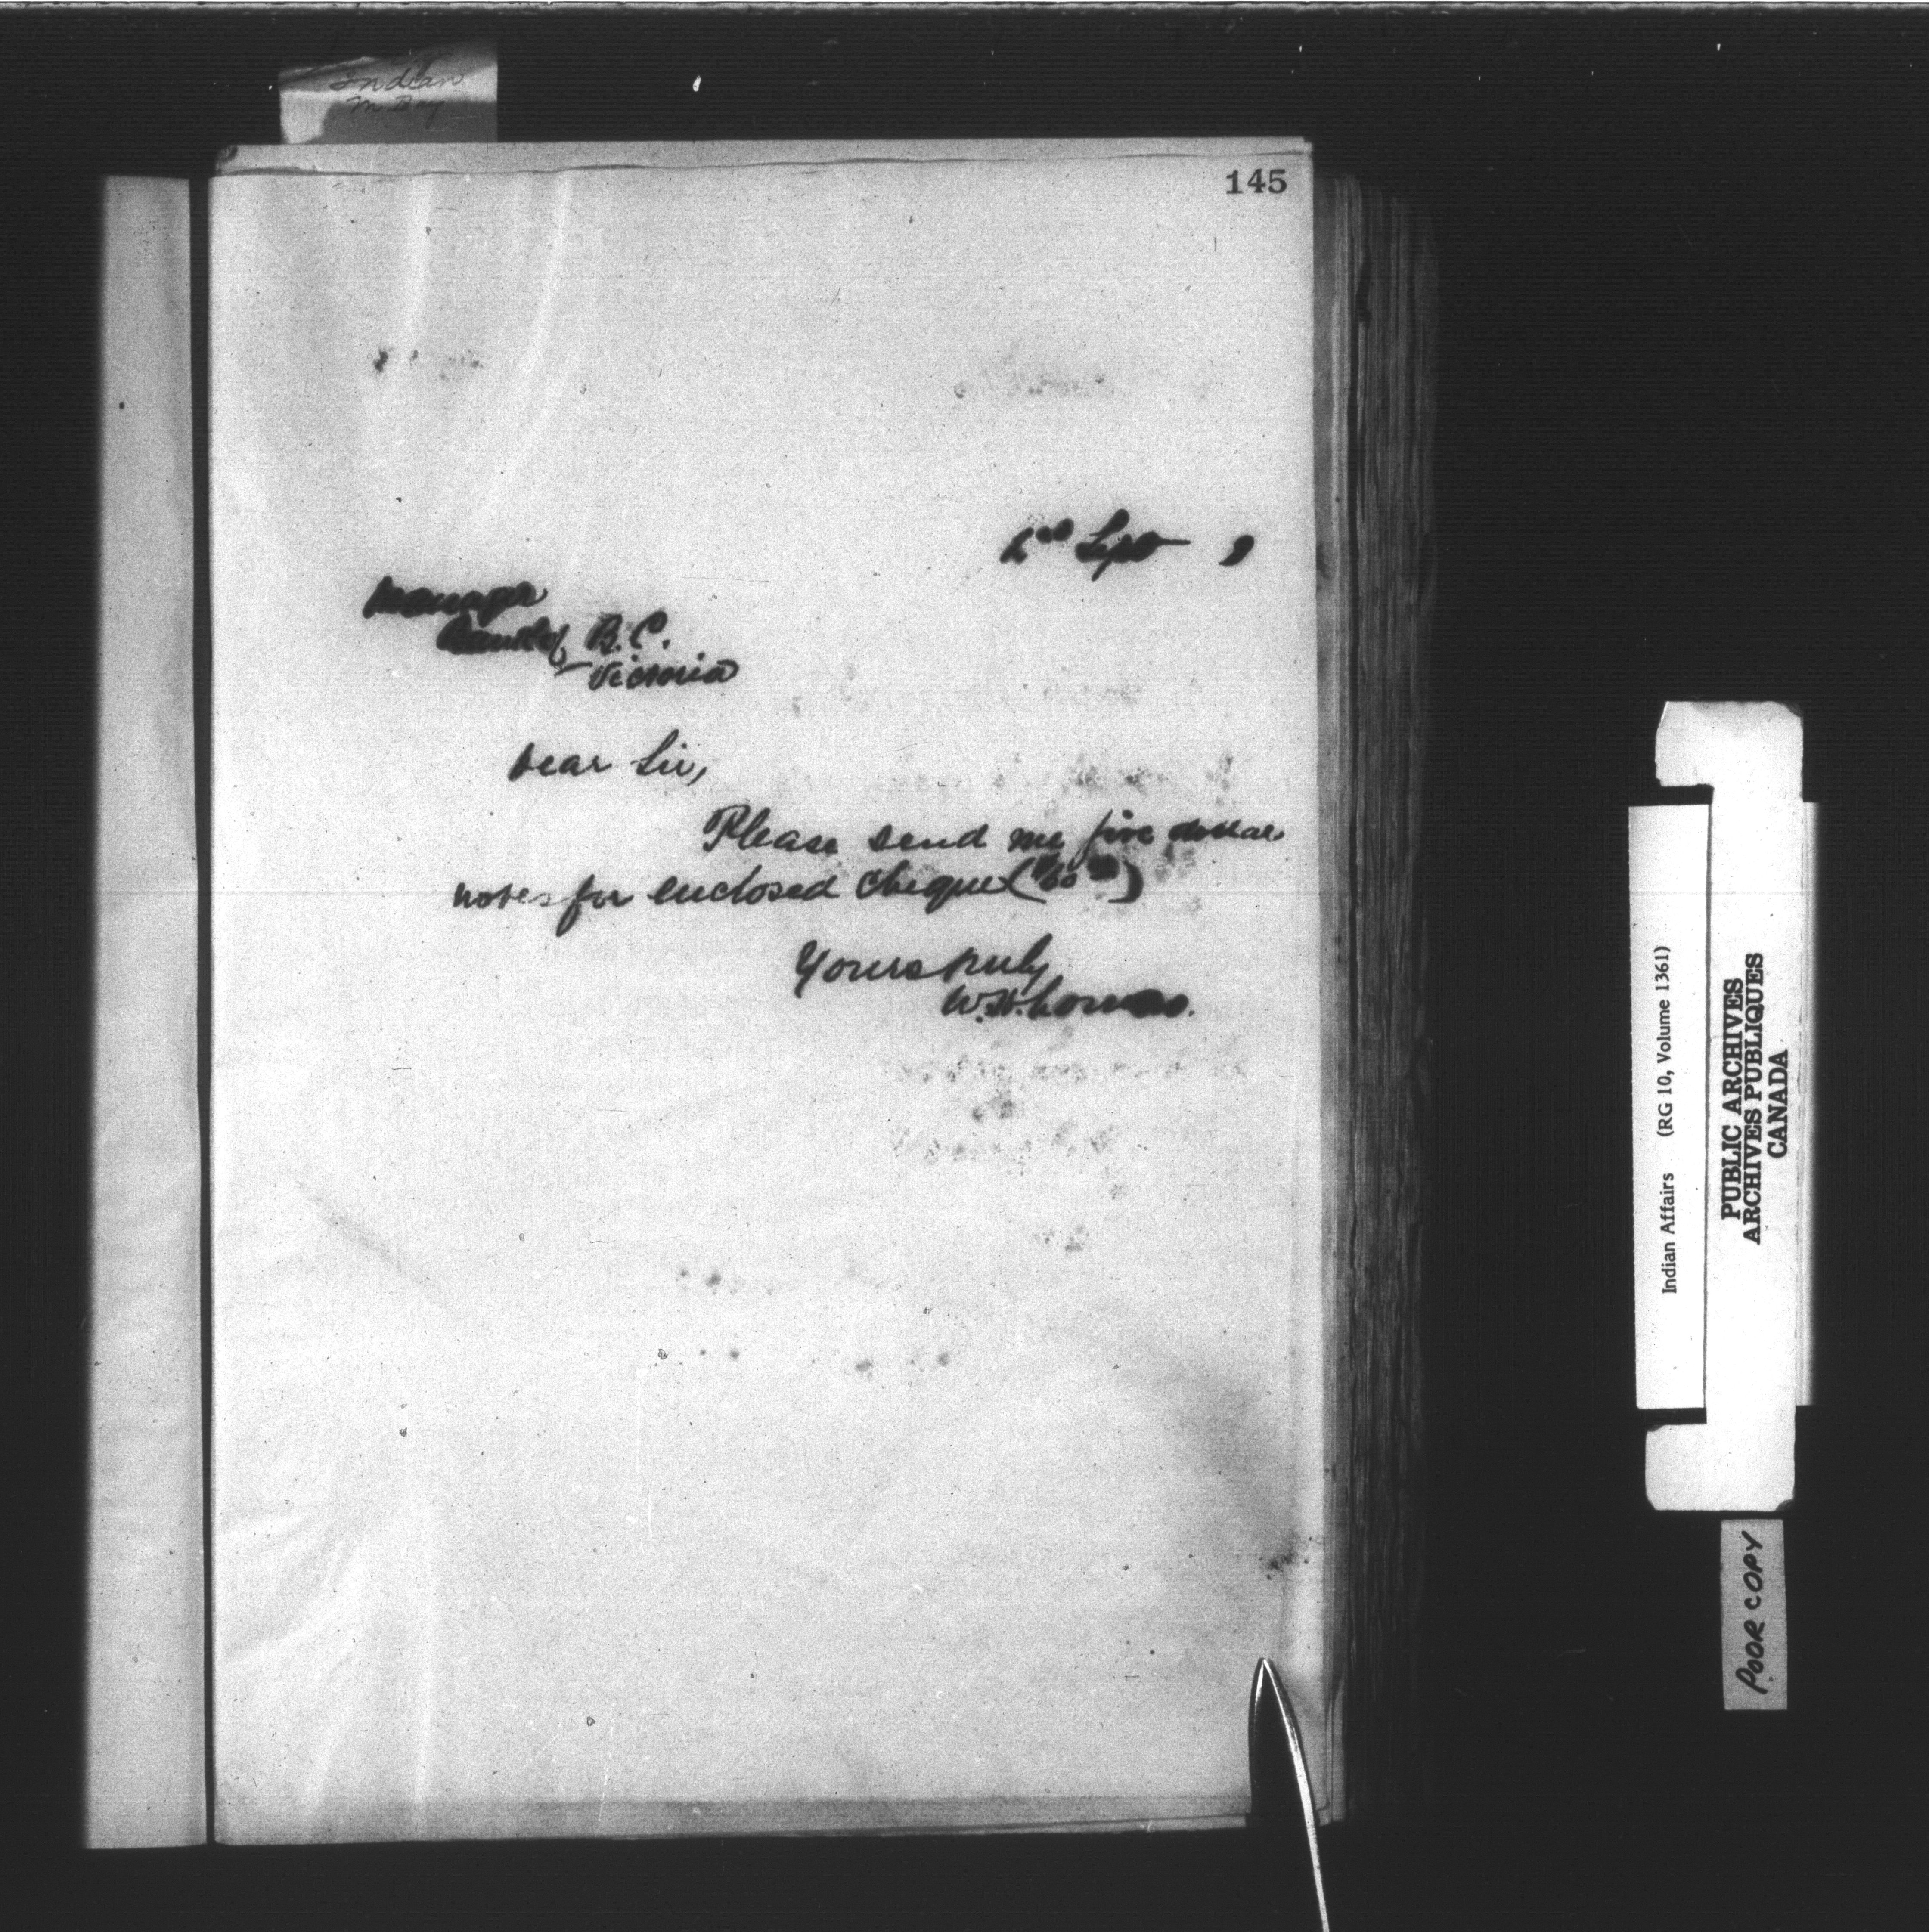 Indian
145
2nd Sept 9
Manager
Bank of B.C.
Victoria
Dear Sir,
Please send me five dollar
notes for enclosed cheque ($60 00)
Yours truly
W.H. Lomas.
Indian Affairs (RG 10, Volume 1361)
PUBLIC ARCHIVES
ARCHIVES PUBLIQUES
CANADA
POOR COPY